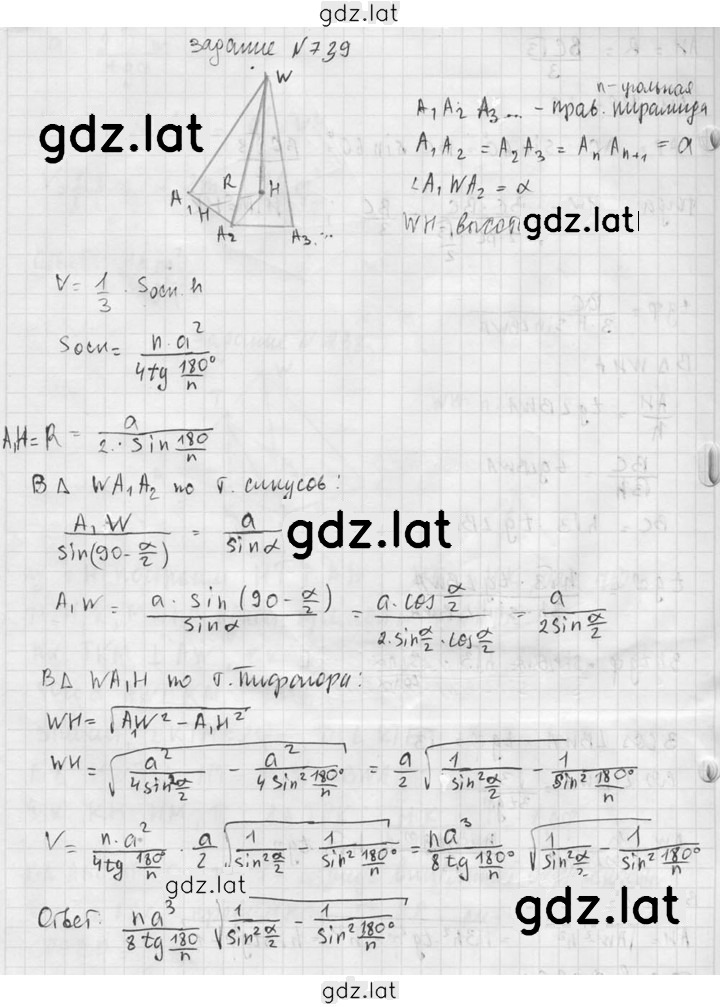 gdz.lat
задание №739
W
n-угольная
A₁A₂A₃... - прав. пирамида
gdz.lat
A₁A₂ = A₂A₃ = AₙAₙ₊₁ = a
R H
∠A₁WA₂ = α
A₁ H A₂ A₃...
WH - высота
gdz.lat
V = 1/3 · Sосн. h
Sосн = n·a²/(4tg 180°/n)
A₁H = R = a/(2·sin 180/n)
В Δ WA₁A₂ по т. синусов:
A₁W/sin(90 - α/2) = a/sinα
gdz.lat
A₁W = a·sin(90 - α/2)/sinα = a·cos α/2/(2·sin α/2 · cos α/2) = a/(2sin α/2)
В Δ WA₁H по т. Пифагора:
WH = √(A₁W² - A₁H²)
WH = √(a²/(4sin² α/2) - a²/(4sin² 180°/n)) = a/2 √(1/(sin² α/2) - 1/(sin² 180°/n))
V = n·a²/(4tg 180°/n) · a/2 √(1/(sin² α/2) - 1/(sin² 180°/n)) = na³/(8tg 180°/n) √(1/(sin² α/2) - 1/(sin² 180°/n))
gdz.lat
Ответ: na³/(8tg 180/n) √(1/(sin² α/2) - 1/(sin² 180°/n))
gdz.lat
gdz.lat